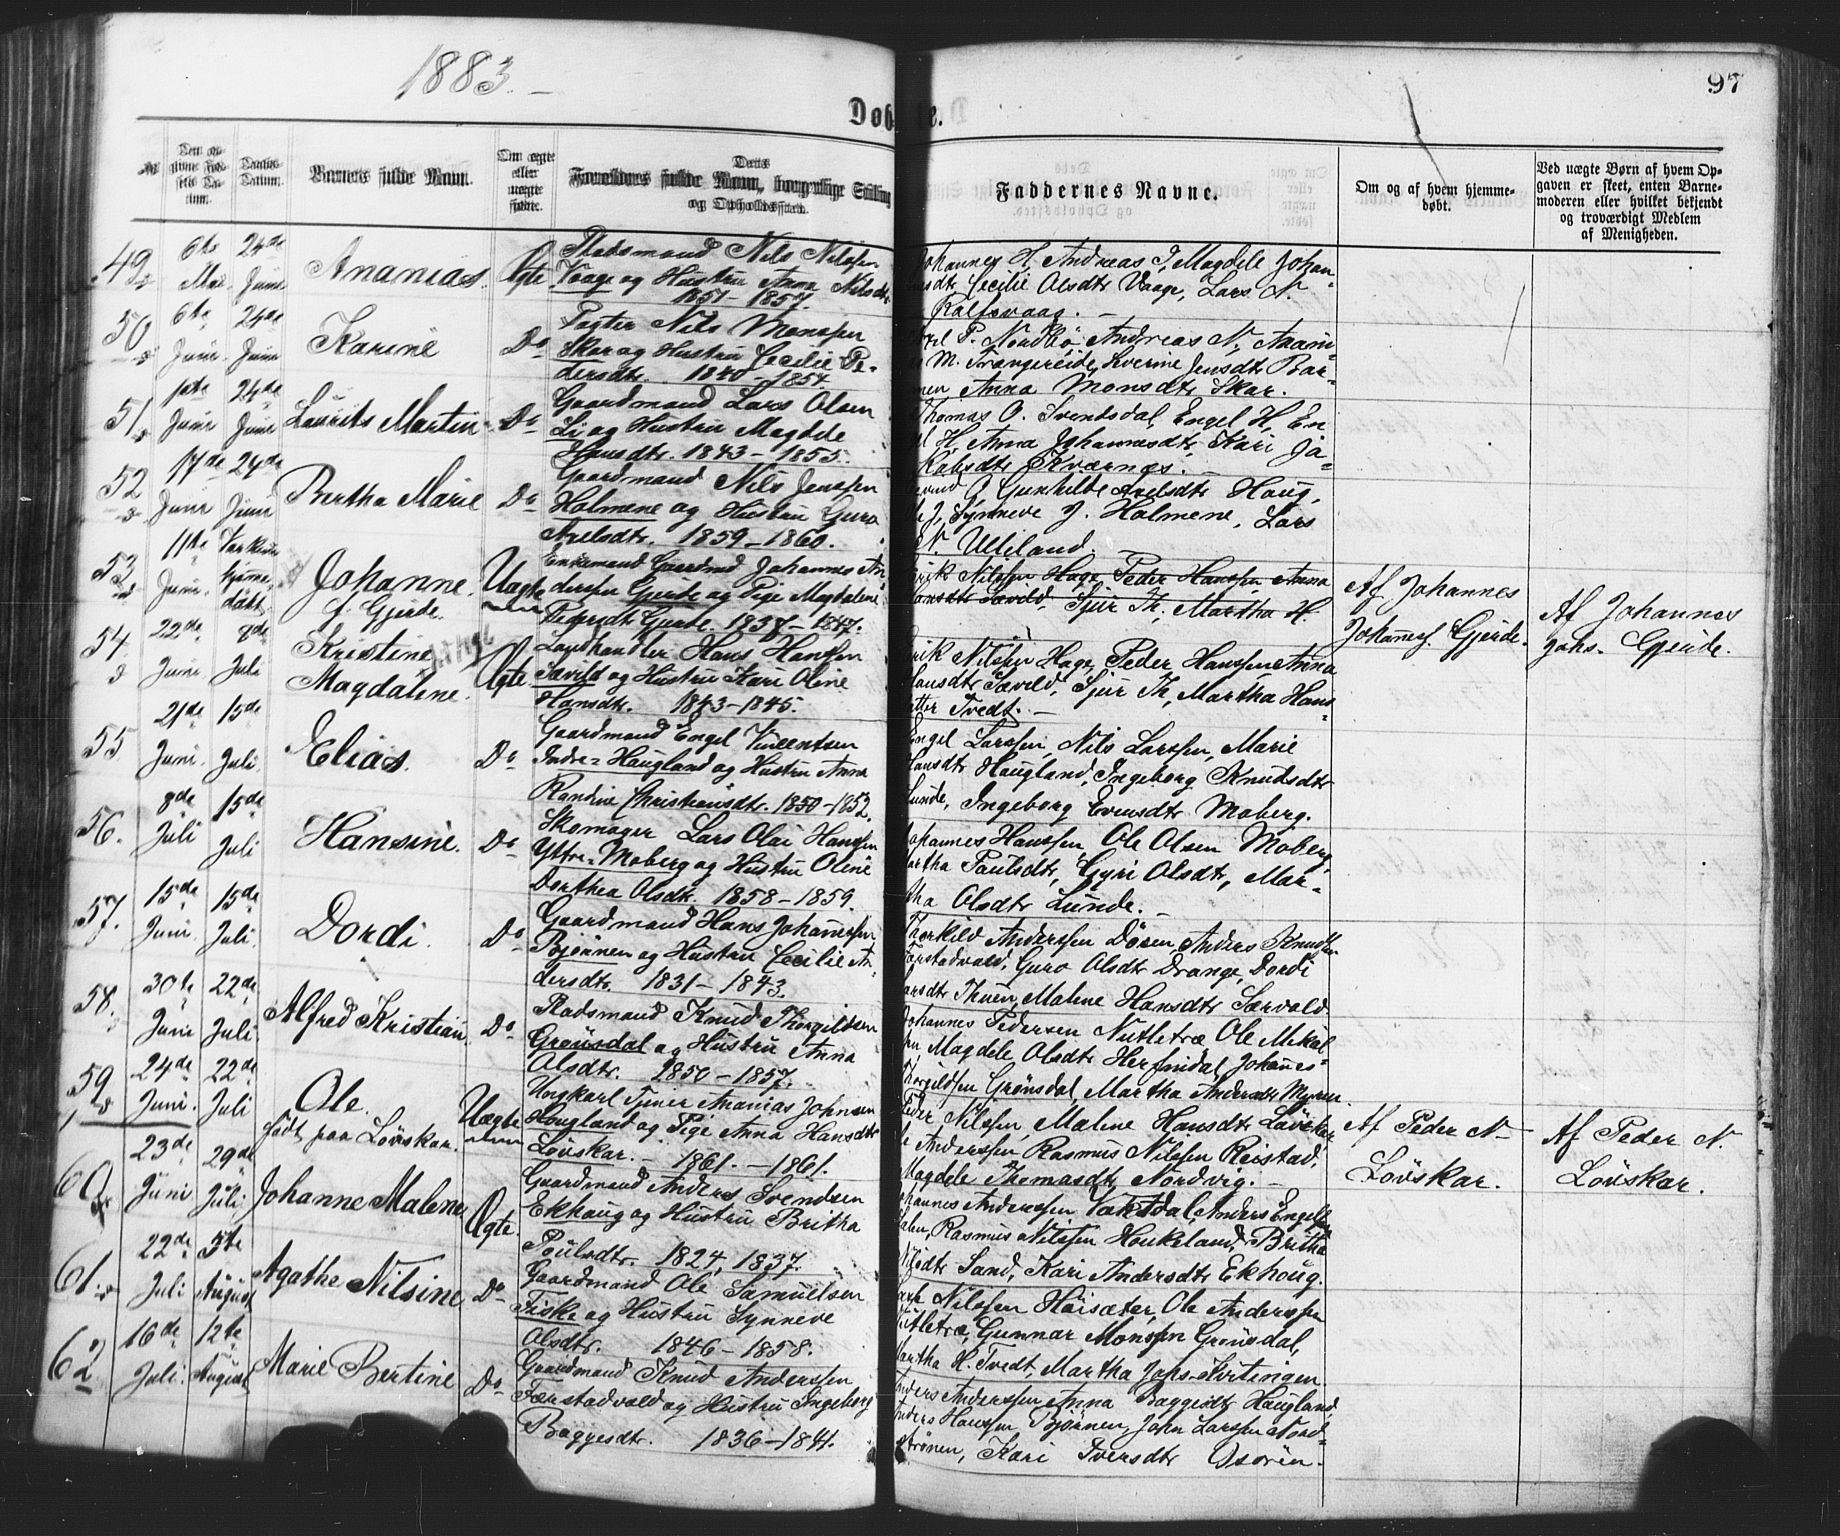 1883.
97
Døbte.
№
Den opgivne Fødsels Datum.
Daabs-Datum.
Barnets fulde Navn.
Om ægte eller uægte fødte.
Dettes Forældres fulde Navn, borgerlige Stilling og Opholdssted.
Faddernes Navne.
Om og af hvem hjemme-
døbt.
Ved uægte Børn af hvem Op-
gaven er skeet, enten Barne-
moderen eller hvilket bekjendt
og troværdigt Medlem
af Menigheden.
49
6te Mai
24de Juni
Ananias.
Ægte
Pladsmand Nils Nilssen
Vaage og Hustru Anna Nilsdtr
1851-1857.
Johannes H, Andreas J, Magdele Johan-
nesdtr, Cecilie Olsdtr Vaage, Lars N.
Kalfsvaag.
50
6te Juni
24de Juni
Karine
Do
Pagter Nils Monssen
Skar og Hustru Cecilie Pe-
dersdtr. 1840-1854
P. Nordbø Andreas N, Anani-
M. Trangereide, Severine Jensdtr Bar-
men Anna Monsdtr Skar.
51.
1ste Juni
24de Juni
Laurits Martin
Do
Gaardmand Lars Olsen
Li og Hustru Magdele
Hansdtr. 1843-1855.
Thomas O. Svendsdal, Engel H, En-
gel H, Anna Johannesdtr, Kari Ja-
kobsdtr Kværnes.
52
17de Juni
24de Juni
Bertha Marie
Do
Gaardmand Nils Jenssen
Holmene og Hustru Guro
Axelsdtr. 1859-1860.
G, Gunhilde Axelsdtr Haug,
J, Synneve J. Holmene, Lars
N. Ulleland.
53
11te Juni
hjemme-
døbt
Johanne
J. Gjerde.
Uægte
Enkemand Gaardmd Johannes An-
derssen Gjerde og Pige Magdalene
Pedersdtr Gjerde. 1838-1847.
Erik Nilssen Hage, Peder Hanssen, Anna
Hansdtr Sævild, Sjur Th., Martha H.
Af Johannes
Johannes. Gjerde.
Af Johannes
Johs. Gjerde.
54
22de Juni
8de Juli
Kristine
Magdalene.
Ægte
Landhandler Hans Hansen
Sævild og Hustru Kari Oline
Hansdtr. 1843-1845.
Erik Nilssen Hage, Peder Hanssen, Anna
Hansdtr Sævild, Sjur Th, Martha Hans-
datter Tvedt.
55
21de Juni.
15de Juli.
Elias.
Do
Gaardmand Engel Vincentsen
Indre-Haugland og Hustru Anna
Randine Christiansdtr. 1850-1852.
Engel Larssen, Nils Larssen, Marie
Hansdtr Haugland, Ingeborg Knudsdtr
Lunde, Ingeborg Evensdtr Moberg.
56.
8de Juli
15de Juli
Hansine.
Do
Skomager Lars Olai Hanssen
Ytre-Moberg og Hustru Oline
Dorthea Olsdtr. 1858-1859.
Johannes Hanssen, Ole Olsen Moberg,
Martha Poulsdtr, Gyri Olsdtr, Mar-
tha Olsdtr Lunde.
57.
15de Juni
15de Juli.
Dordi.
Do
Gaardmand Hans Johannessen
Bjørnen og Hustru Cecilie An-
dersdtr. 1831-1843.
Thorkild Anderssen Døsen, Anders Knudsen
Færstadvald, Guro Olsdtr Drange, Dordi
Larsdtr Thuen, Malene Hansdtr Særvold
58.
30te Juni
22de Juli
Alfred Kristian
Do
Pladsmand Knud Thorgildsen
Grønsdal og Hustru Anna
Olsdtr. 1850-1857.
Johannes Pedersen Nutletræ Ole Mikal-
sen, Magdele Olsdtr Herfindal, Johannes
Thorgildsen Grønsdal, Martha Andersdtr Myren
59
24de Juni.
22de Juli
Ole.
født paa Løvskar.
Uægte
Ungkarl Tjener Ananias Johnsen
Haugland og Pige Anna Hansdtr
Løvskar. - 1861. - 1861.
Peder Nilssen, Malene Hansdtr Løvskar
Anderssen, Rasmus Nilssen Reistad,
Magdele Thomasdtr Nordvig.
Af Peder N-
Løvskar.
Af Peder N.
Løvskar.
60
23de Juni
29de Juli
Johanne Malene
Ægte
Gaardmand Anders Svendsen
Ekhaug og Hustru Britha
Poulsdtr. 1824, 1837.
Johannes Anderssen Vaktdal, Anders Engelsen
Rasmus Nilssen Houkeland, Britha
Nilsdtr Sand, Kari Andersdtr Ekhoug.
61.
22de Juli
5te August
Agathe Nilsine
Do
Gaardmand Ole Samuelsen
Fiske og Hustru Synneve
Olsdtr. 1846-1858.
Nilssen Høisæter, Ole Anderssen
Nutletræ, Gunnar Monssen Grønsdal,
Martha H. Tvedt, Martha Johs. Hvitingen
62
16de Juli.
12te August
Marie Bertine
Do
Gaardmand Knud Anderssen
Færstadvald og Hustru Ingeborg
Baggesdtr. 1836-1841.
Anders Anderssen, Anna Baggesdtr Haugland,
Anders Hanssen Bjørnen, John Larssen Nord-
strønen, Kari Iversdtr Osøren.